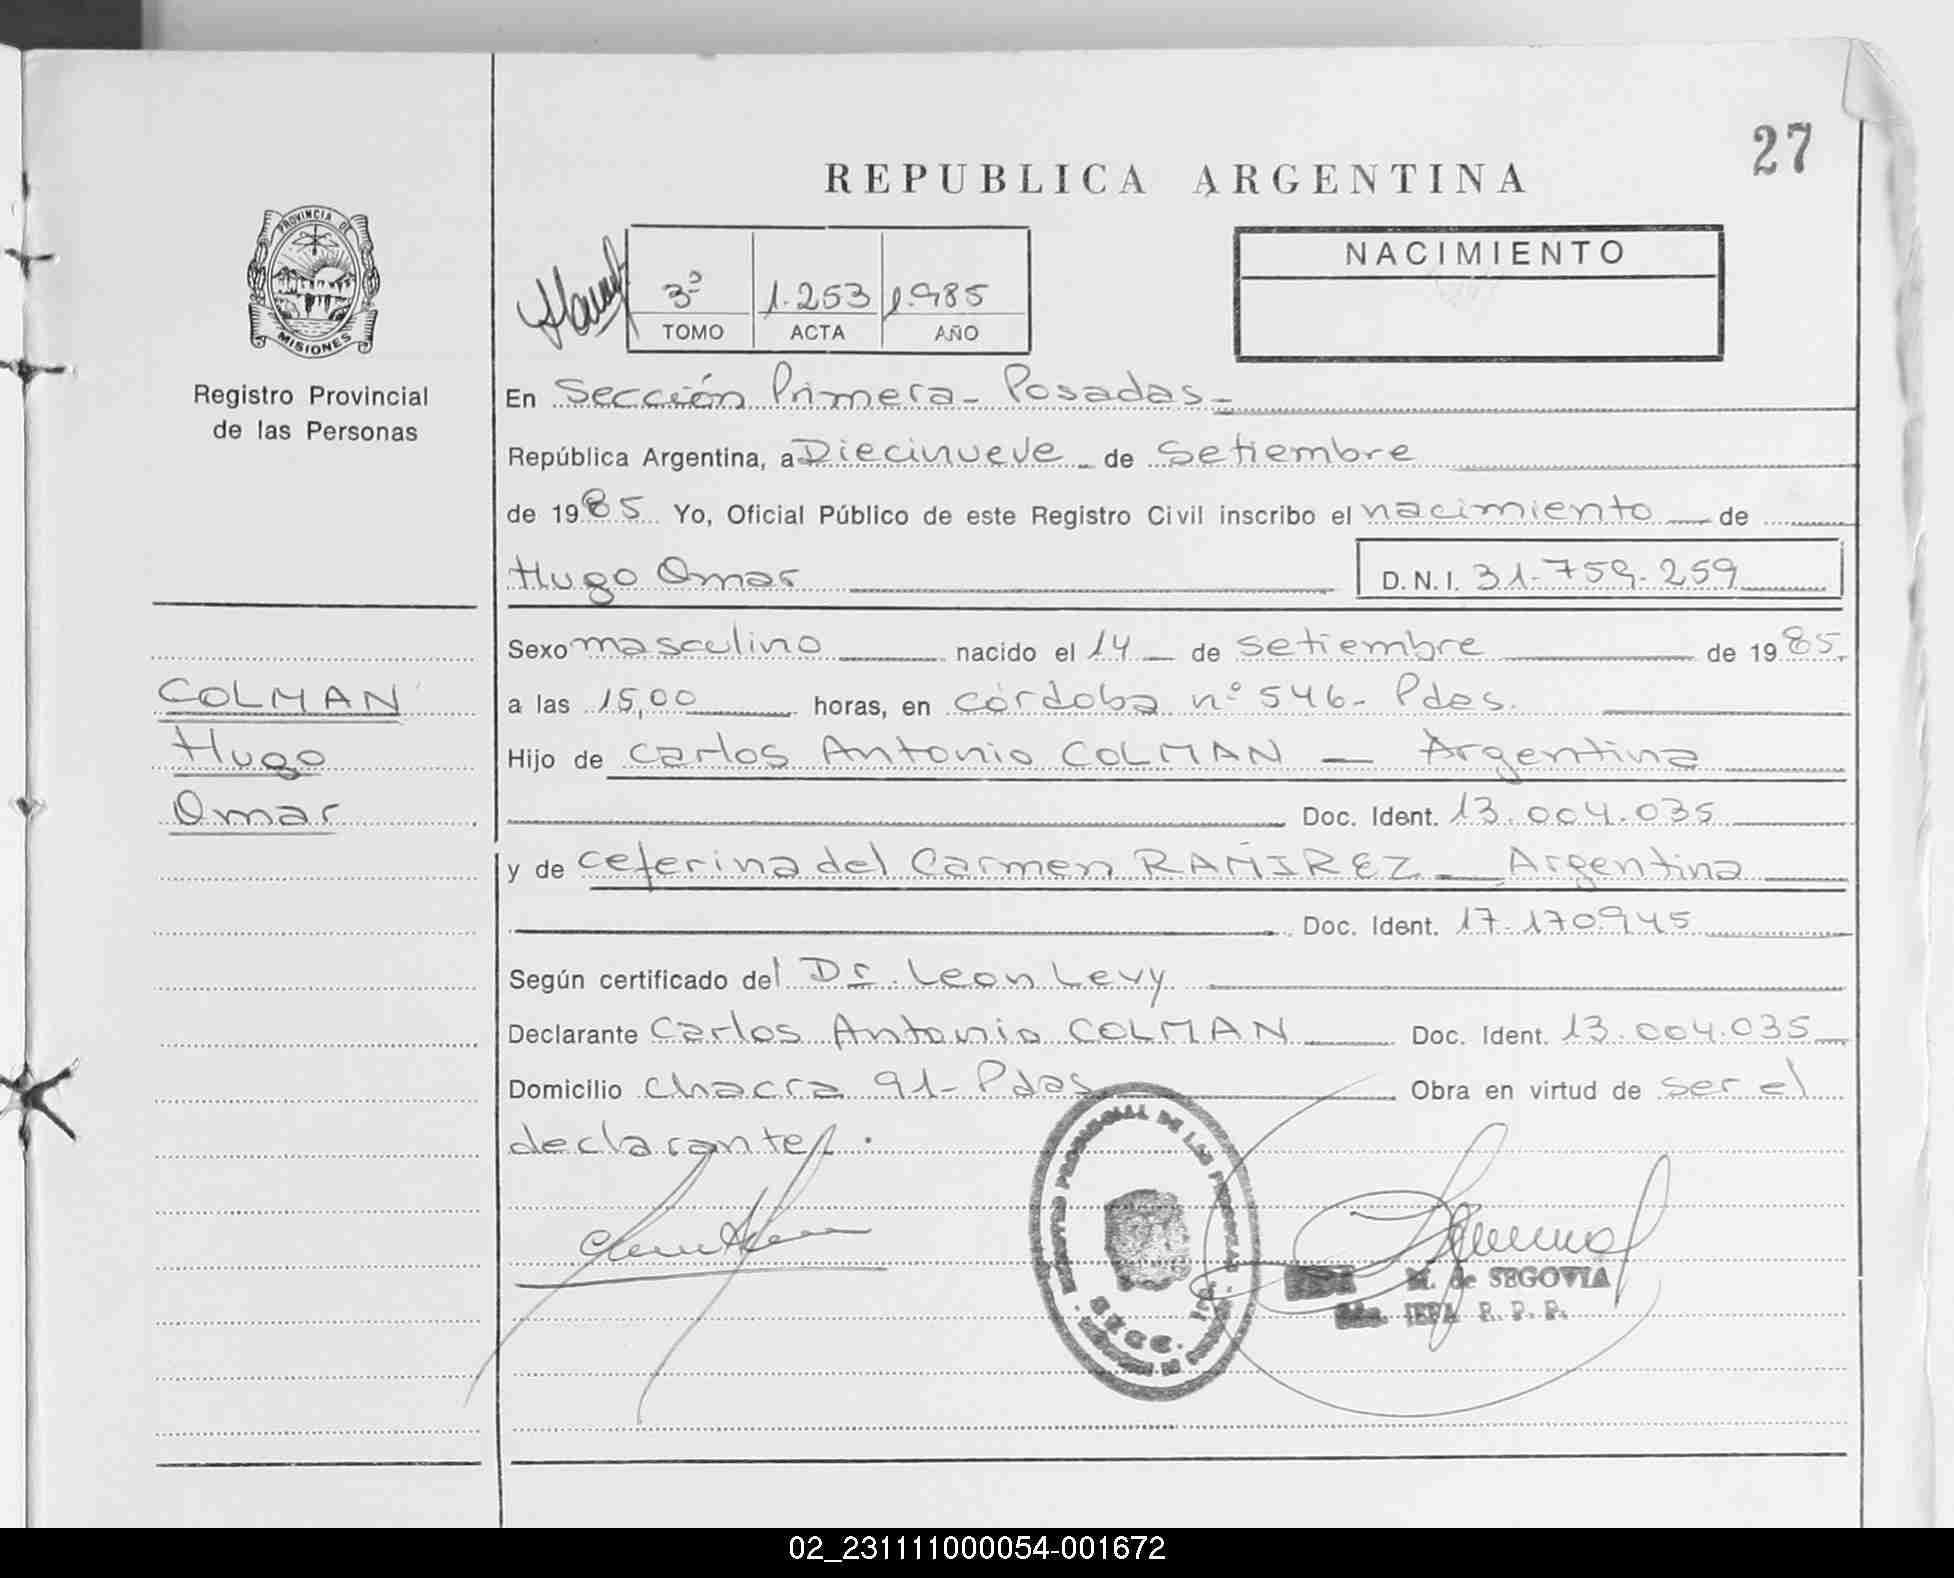 27
REPUBLICA ARGENTINA
PROVINCIA DE
MISIONES
Registro Provincial
de las Personas
3º 1.253 1.985
TOMO ACTA AÑO
NACIMIENTO
En Sección Primera - Posadas -
República Argentina, a Diecinueve - de Setiembre
de 1985 Yo, Oficial Público de este Registro Civil inscribo el nacimiento — de
Hugo Omar
D.N.I. 31.759.259
Sexo masculino nacido el 14 de setiembre de 1985
COLMAN
Hugo
Omar
a las 15,00 horas, en córdoba nº 546 - Pdas.
Hijo de Carlos Antonio COLMAN — Argentina
Doc. Ident. 13.004.035
y de Ceferina del Carmen RAMIREZ — Argentina
Doc. Ident. 17.170.945
Según certificado del Dr. Leon Levy
Declarante Carlos Antonio COLMAN Doc. Ident. 13.004.035
Domicilio Chacra 91 - Pdas Obra en virtud de ser el
declarante.
REGISTRO PROVINCIAL DE LAS PERSONAS
M. de SEGOVIA
JEFA R. P. P.
02_231111000054-001672